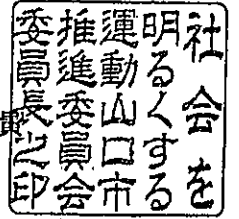 社会を
明るくする
運動山口市
推進委員会
委員長之印